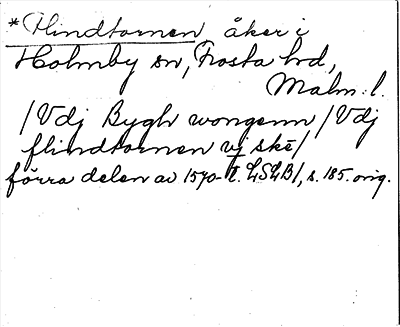 *Flindtornen åker i
Holmby sn, Frosta hd,
Malm. l.
/Vdj Bygh wongenn/Vdj
flindtornen vj skē/
förra delen av 1570-t. LSLB/, s. 185. orig.